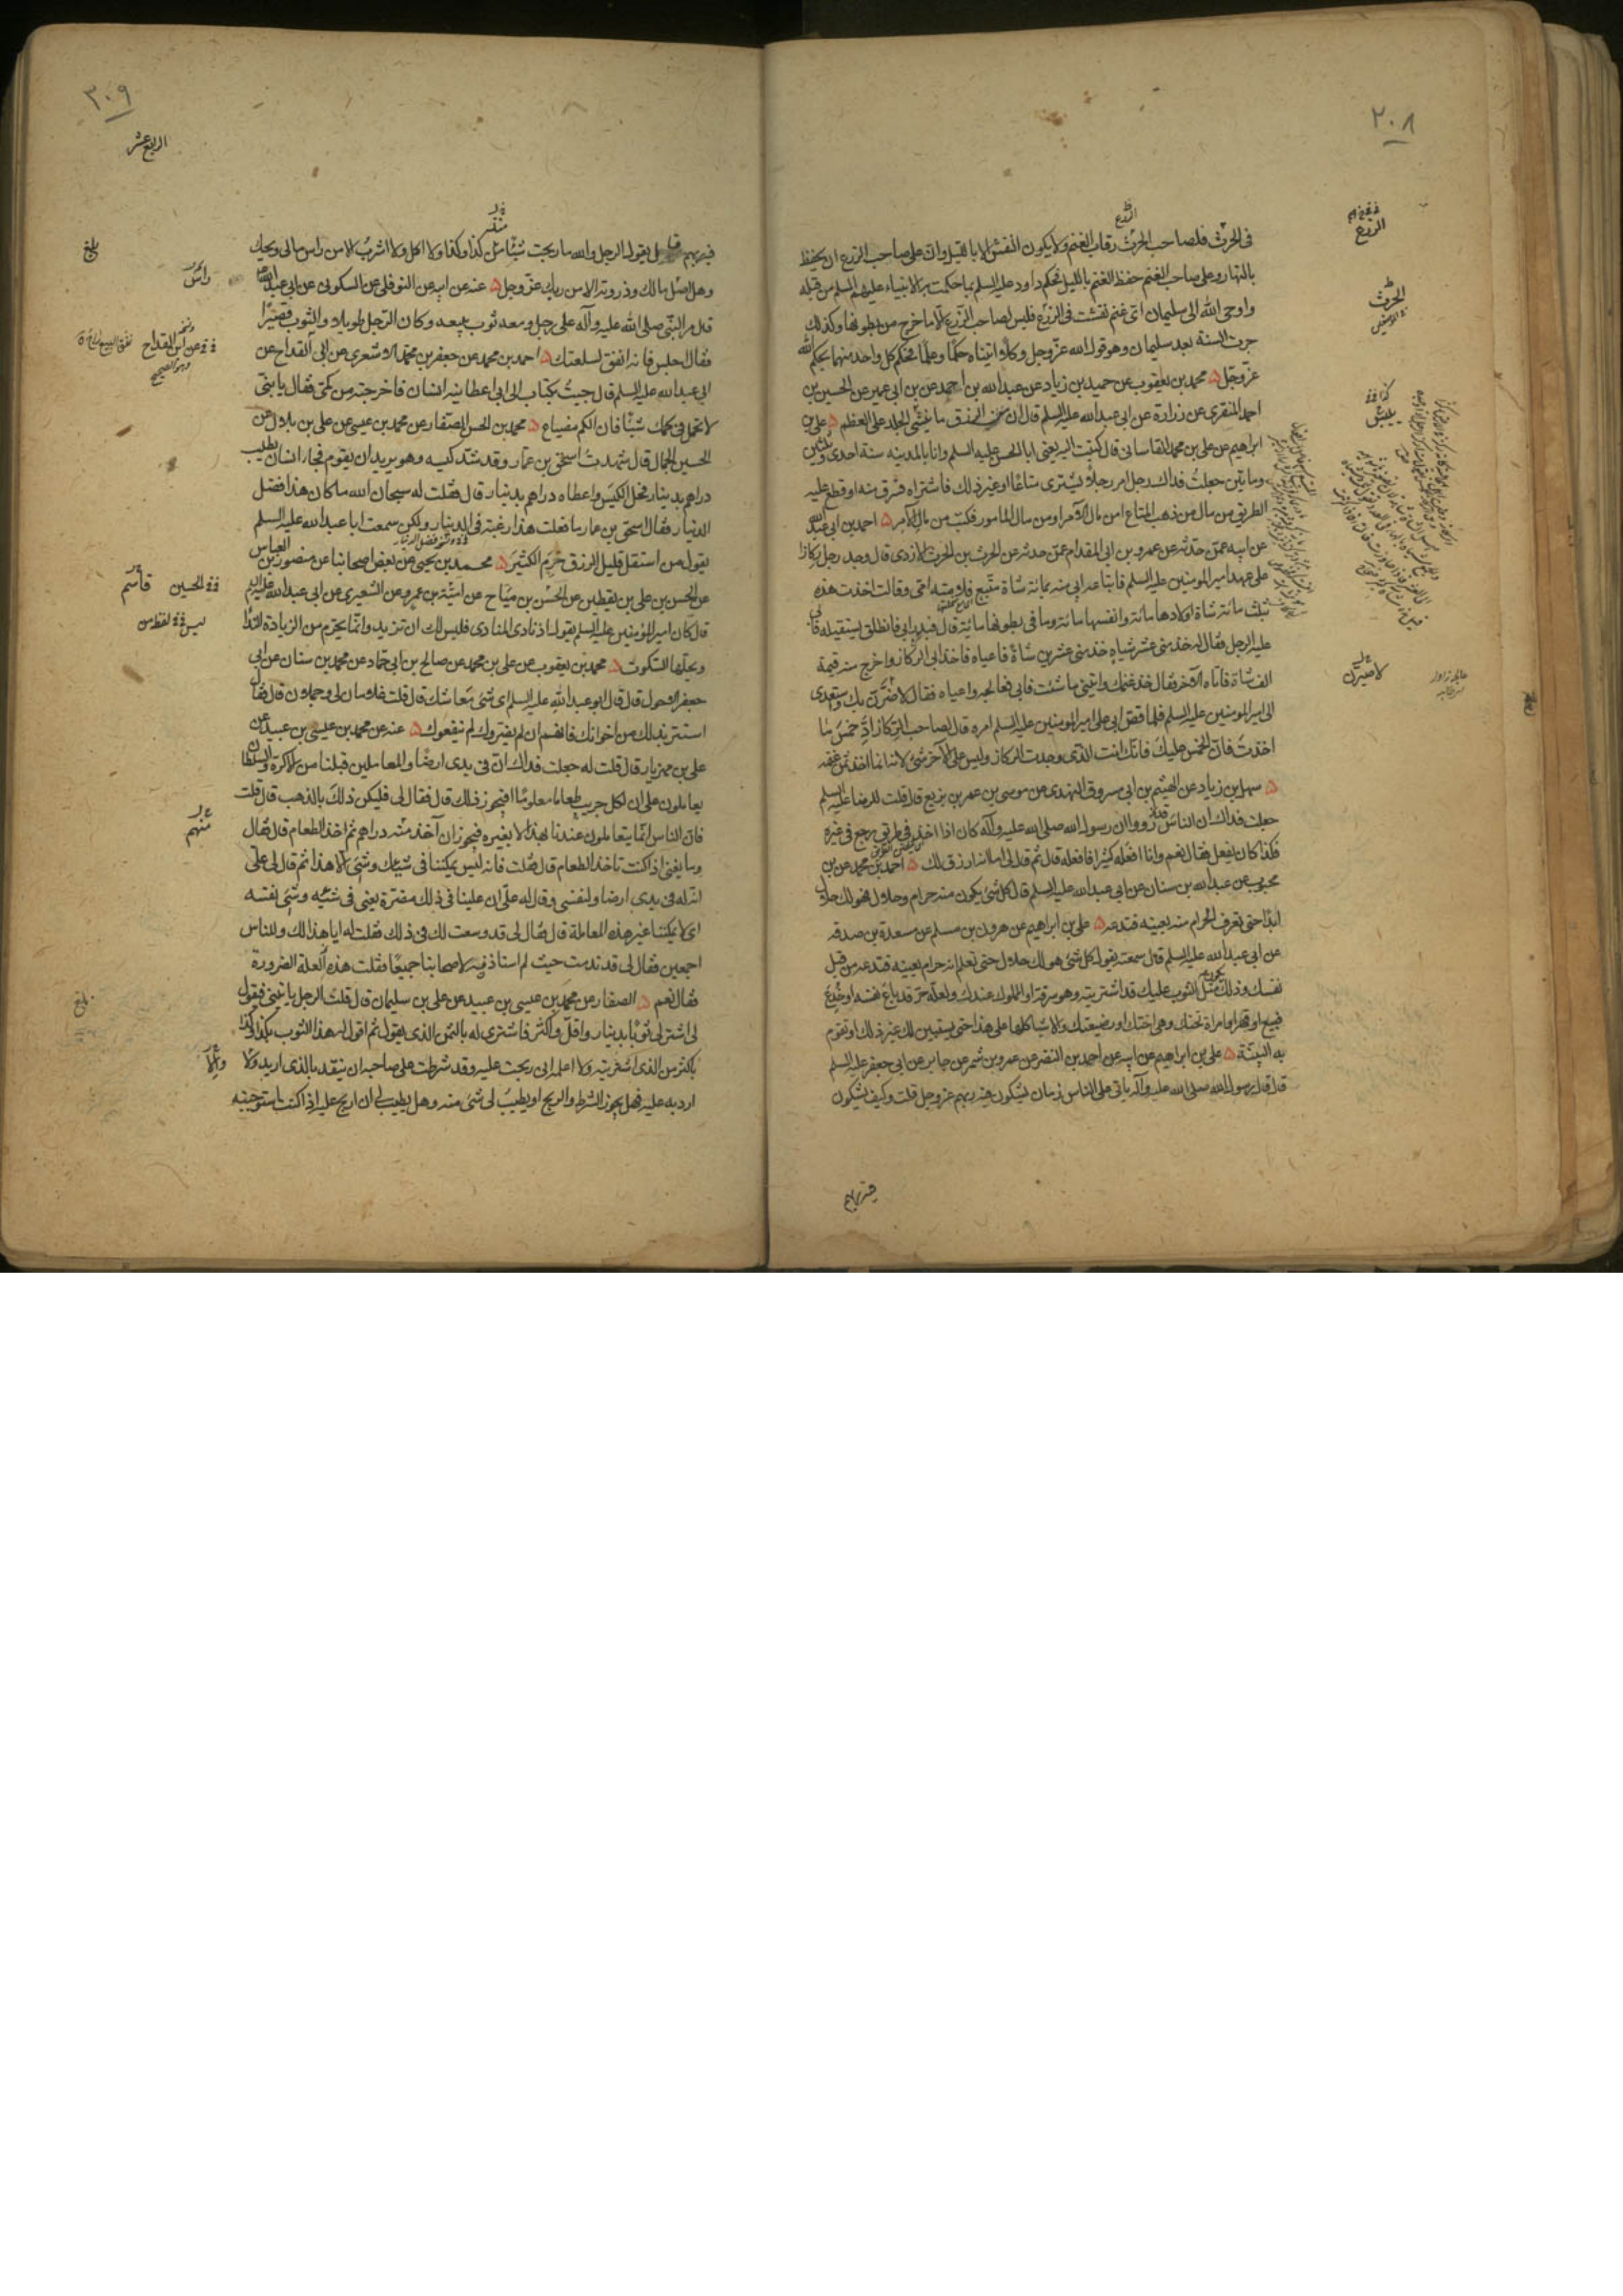 ٢٠٨
الزرع
فى الحرث فلصاحب الحرث رقاب الغنم ولا يكون النفش الا بالليل وان على صاحب الزرع ان يحفظ
بالنهار وعلى صاحب الغنم حفظ الغنم بالليل فحكم داود عليه السلم بما حكمت به الانبياء عليهم السلم من قبله
واوحى الله الى سليمان اى غنم نفشت فى الزرع فليس لصاحب الزرع الا ما خرج من بطونها وكذلك
جرت السنة بعد سليمان وهو قول الله عز وجل وكلا اتيناه حكما وعلما فحكم كل واحد منهما بحكم الله
عز وجل ۵ محمد بن يعقوب عن حميد بن زياد عن عبد الله بن احمد عن بن ابى عمير عن الحسين بن
احمد المنقرى عن زرارة عن ابى عبد الله عليه السلم قال ان من الرزق ما ييبس الجلد على العظم ۵ على بن
ابراهيم عن على بن محمد القاسانى قال كتبت اليه يعنى ابا الحسن عليه السلم وانا بالمدينه سنة احدى وثلثين
وماتين جعلت فداك رجل امر رجلا يشترى متاعا او غير ذلك فاشتراه فسرق منه او قطع عليه
الطريق من مال من ذهب المتاع امن مال الآمر او من مال المامور فكتب من مال الآمر ۵ احمد بن ابى عبد الله
عن ابيه عمن حدثه عن عمرو بن ابى المقدام عمن حدثه عن الحرث بن الحرث الازدى قال وجد رجل ركازا
على عهد امير المومنين عليه السلم فابتاعه ابى منه بمائة شاة متبع فلامته امى وقالت اخذت هذه
بثلث مائة شاة اولادها مائة وانفسها مائة وما فى بطونها مائة قال فندم ابى فانطلق ليستقيله فابى
عليه الرجل فقال له خذ منى عشر شياه خذ منى عشرين شاة فاعياه فاخذ ابى الركاز واخرج منه قيمة
الف شاة فاتاه الآخر فقال خذ غنمك واتنى ما شئت فابى فعالجه واعياه فقال لاضرن بك واستعدى
الى امير المومنين عليه السلم فلما قص ابى على امير المومنين عليه السلم امره قال لصاحب الركاز اد خمس ما
اخذت فان الخمس عليك فانك انت الذى وجدت الركاز وليس على الآخر شئ لانه انما اخذ ثمن غنمه
۵ سهل بن زياد عن الهيثم بن ابى مسروق النهدى عن موسى بن عمر بن بزيع قال قلت للرضا عليه السلم
جعلت فداك ان الناس قد رووا ان رسول الله صلى الله عليه وآله كان اذا اخذ فى طريق رجع فى غيره
فكذا كان يفعل فقال نعم وانا افعله كثيرا فافعله قال ثم قال لى اما انه ارزق لك ۵ احمد بن محمد عن بن
محبوب عن عبد الله بن سنان عن ابى عبد الله عليه السلم قال كل شئ يكون منه حرام وحلال فهو لك حلال
ابدا حتى تعرف الحرام منه بعينه فتدعه ۵ على بن ابراهيم عن هرون بن مسلم عن مسعدة بن صدقه
عن ابى عبد الله عليه السلم قال سمعته يقول كل شئ هو لك حلال حتى تعلم انه حرام بعينه فتدعه من قبل
نفسك وذلك مثل الثوب عليك قد اشتريته وهو سرقة او المملوك عندك ولعله حر قد باع نفسه او خدع
فبيع او قهر او امراة تحتك وهى اختك او رضيعتك والاشيا كلها على هذا حتى يستبين لك غير ذلك او تقوم
به البينة ۵ على بن ابراهيم عن ابيه عن احمد بن النضر عن عمرو بن شمر عن جابر عن ابى جعفر عليه السلم
قال قال رسول الله صلى الله عليه وآله ياتى على الناس زمان يشكون فيه ربهم عز وجل قلت وكيف يشكون
فيه ربهم
الزرع
الحرث
ييبس
٣٠٩
الرابع عشر
فيه ربهم قال يقول الرجل والله ما ربحت شيئا منذ كذا وكذا ولا اكل ولا اشرب الا من راس مالى ويحك
وهل اصل مالك وذروته الا من ربك عز وجل ۵ عنه عن ابيه عن النوفلى عن السكونى عن ابى عبد الله
قال مر النبى صلى الله عليه وآله على رجل ومعه ثوب يبيعه وكان الرجل طويلا والثوب قصيرا
فقال اجلس فانه انفق لسلعتك ۵ احمد بن محمد عن جعفر بن محمد الاشعرى عن ابى القداح عن
ابى عبد الله عليه السلم قال جيت بكتاب الى ابى اعطانيه انسان فاخرجته من كمى فقال يا بنى
لا تحمل فى كمك شيئا فان الكم مضياع ۵ محمد بن الحسن الصفار عن محمد بن عيسى عن على بن بلال عن
الحسين الجمال قال شهدت اسحق بن عمار وقد شد كيسه وهو يريد ان يقوم فجاء انسان يطلب
دراهم بدينار فحل الكيس واعطاه دراهم بدينار قال فقلت له سبحان الله ما كان هذا فضل
الدينار فقال اسحق بن عمار ما فعلت هذا رغبة فى الدينار ولكن سمعت ابا عبد الله عليه السلم
يقول من استقل قليل الرزق حرم الكثير ۵ محمد بن يحيى عن بعض اصحابنا عن منصور بن العباس
عن الحسن بن على بن يقطين عن الحسن بن مياح عن امية بن عمرو عن الشعيرى عن ابى عبد الله عليه السلم
قال كان امير المؤمنين عليه السلم يقول اذا نادى المنادى فليس لك ان تزيد وانما يحرم من الزيادة النداء
ويحلها السكوت ۵ محمد بن يعقوب عن على بن محمد عن صالح بن ابى حماد عن محمد بن سنان عن ابى
جعفر الاحول قال قال ابو عبد الله عليه السلم اى شئ معاشك قال قلت غلامان لى وجملان قال فقال
استتر بذلك من اخوانك فانهم ان لم يضروك لم ينفعوك ۵ عنه عن محمد بن عيسى بن عبيد عن
على بن مهزيار قال قلت له جعلت فداك ان فى يدى ارضا والمعاملين قبلنا من الاكرة والسلطان
يعاملون على ان لكل جريب طعاما معلوما افيجوز ذلك قال فقال لى فليكن ذلك بالذهب قال قلت
فان الناس انما يتعاملون عندنا بهذا لا بغيره فيجوز ان آخذ منه دراهم ثم اخذ الطعام قال فقال
وما يغنى اذا كنت تاخذ الطعام قال فقلت فانه ليس يمكننا فى شيئك وشئى الا هذا ثم قال لى على
ان له فى يدى ارضا ولنفسى وقال له على ان علينا فى ذلك مضرة يعنى فى شيئه وشئ نفسه
اى لا يمكننا غير هذه المعاملة قال فقال لى قد وسعت لك فى ذلك فقلت له ايا هذا لك وللناس
اجمعين فقال لى قد ندمت حيث لم استاذنه لاصحابنا جميعا فقلت هذه العلة الضرورة
فقال نعم ۵ الصفار عن محمد بن عيسى بن عبيد عن على بن سليمان قال قلت الرجل ياتينى فيقول
لى اشتر لى ثوبا بدينار واقل واكثر فاشترى له بالثمن الذى يقول ثم اقول له هذا الثوب بكذا وكذا
باكثر من الذى اشتريته ولا اعلمه انى ربحت عليه وقد شرطت على صاحبه ان ينقد بالذى اريد والا
ارد به عليه فهل يجوز الشرط والربح او يطيب لى شئ منه وهل يطيب لى ان اربح عليه اذا كنت استوجبته
بلغ
راس
عن ابن القداح
وهو الصحيح
الحسين
قاسم
منهم
بلغ
والا